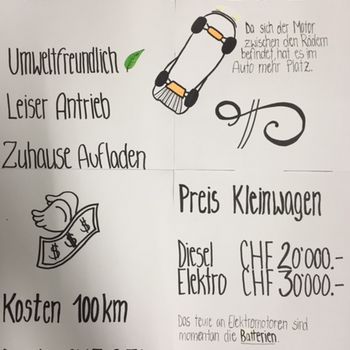 Umweltfreundlich
Leiser Antrieb
Zuhause Aufladen
Da sich der Motor
zwischen den Rädern
befindet, hat es im
Auto mehr Platz.
$ $ $
Kosten 100km
Preis Kleinwagen
Diesel CHF 20'000.-
Elektro CHF 30'000.-
Das teure an Elektromotoren sind
momentan die Batterien.